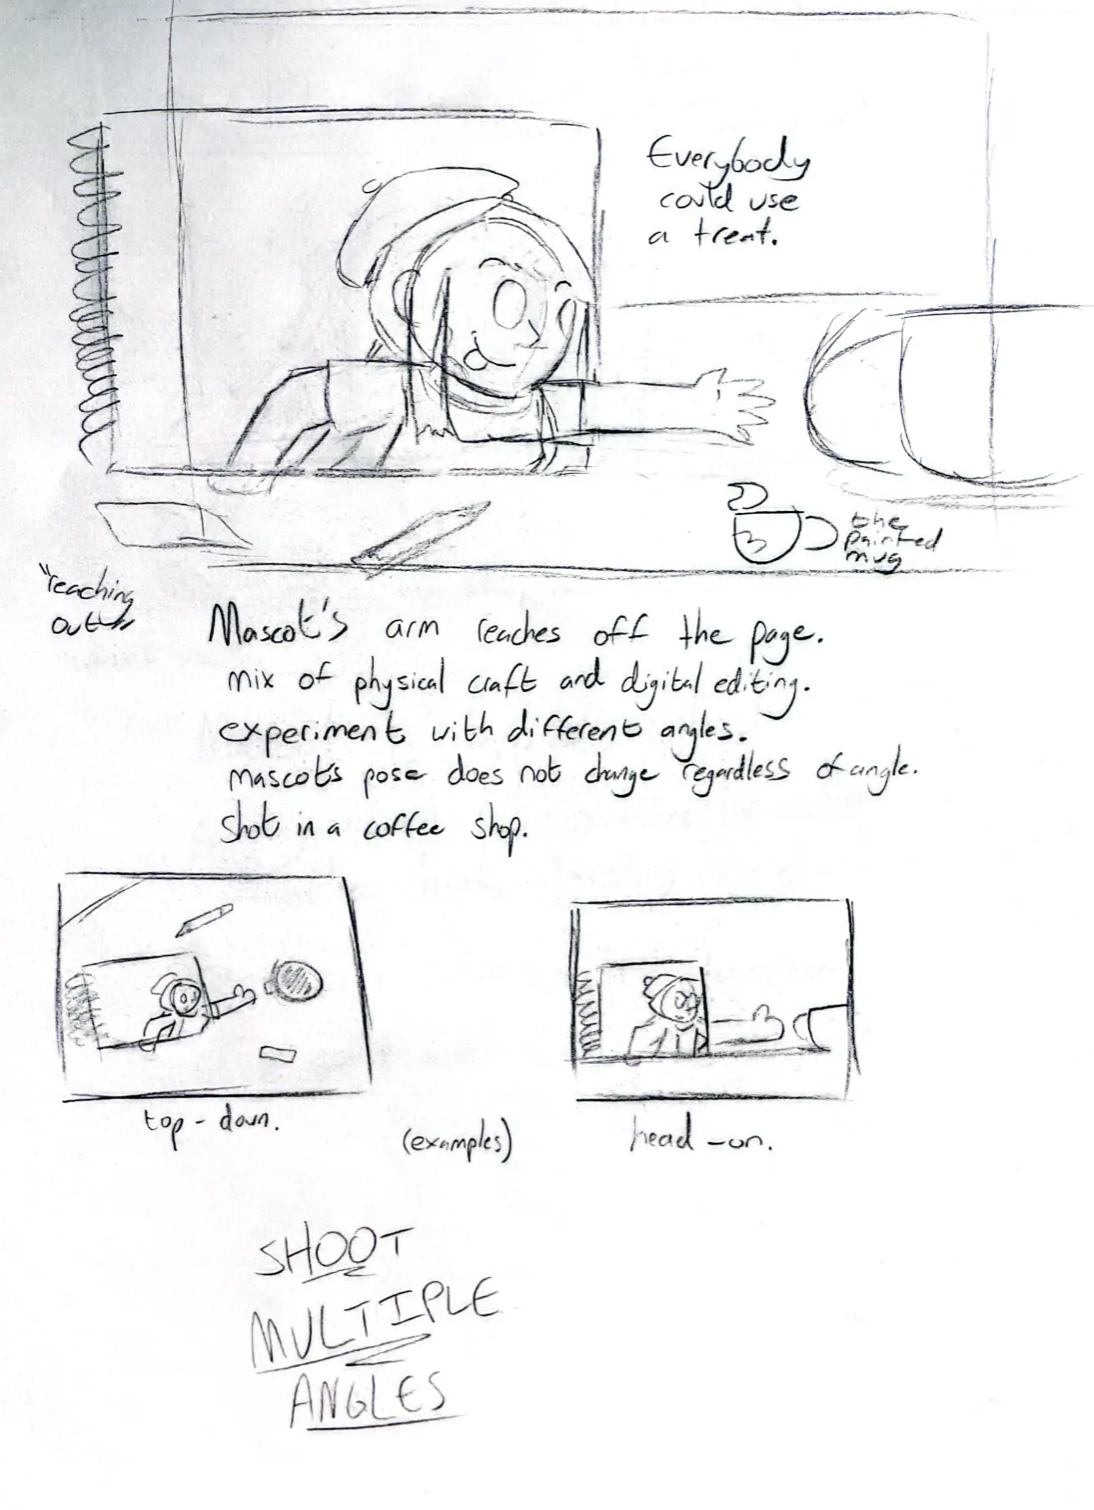 Everybody
could use
a treat.
the
painted
mug
"reaching
out"
Mascot's arm reaches off the page.
mix of physical craft and digital editing.
experiment with different angles.
mascots pose does not change regardless of angle.
shot in a coffee shop.
top-down.
(examples)
head-on.
SHOOT
MULTIPLE
ANGLES